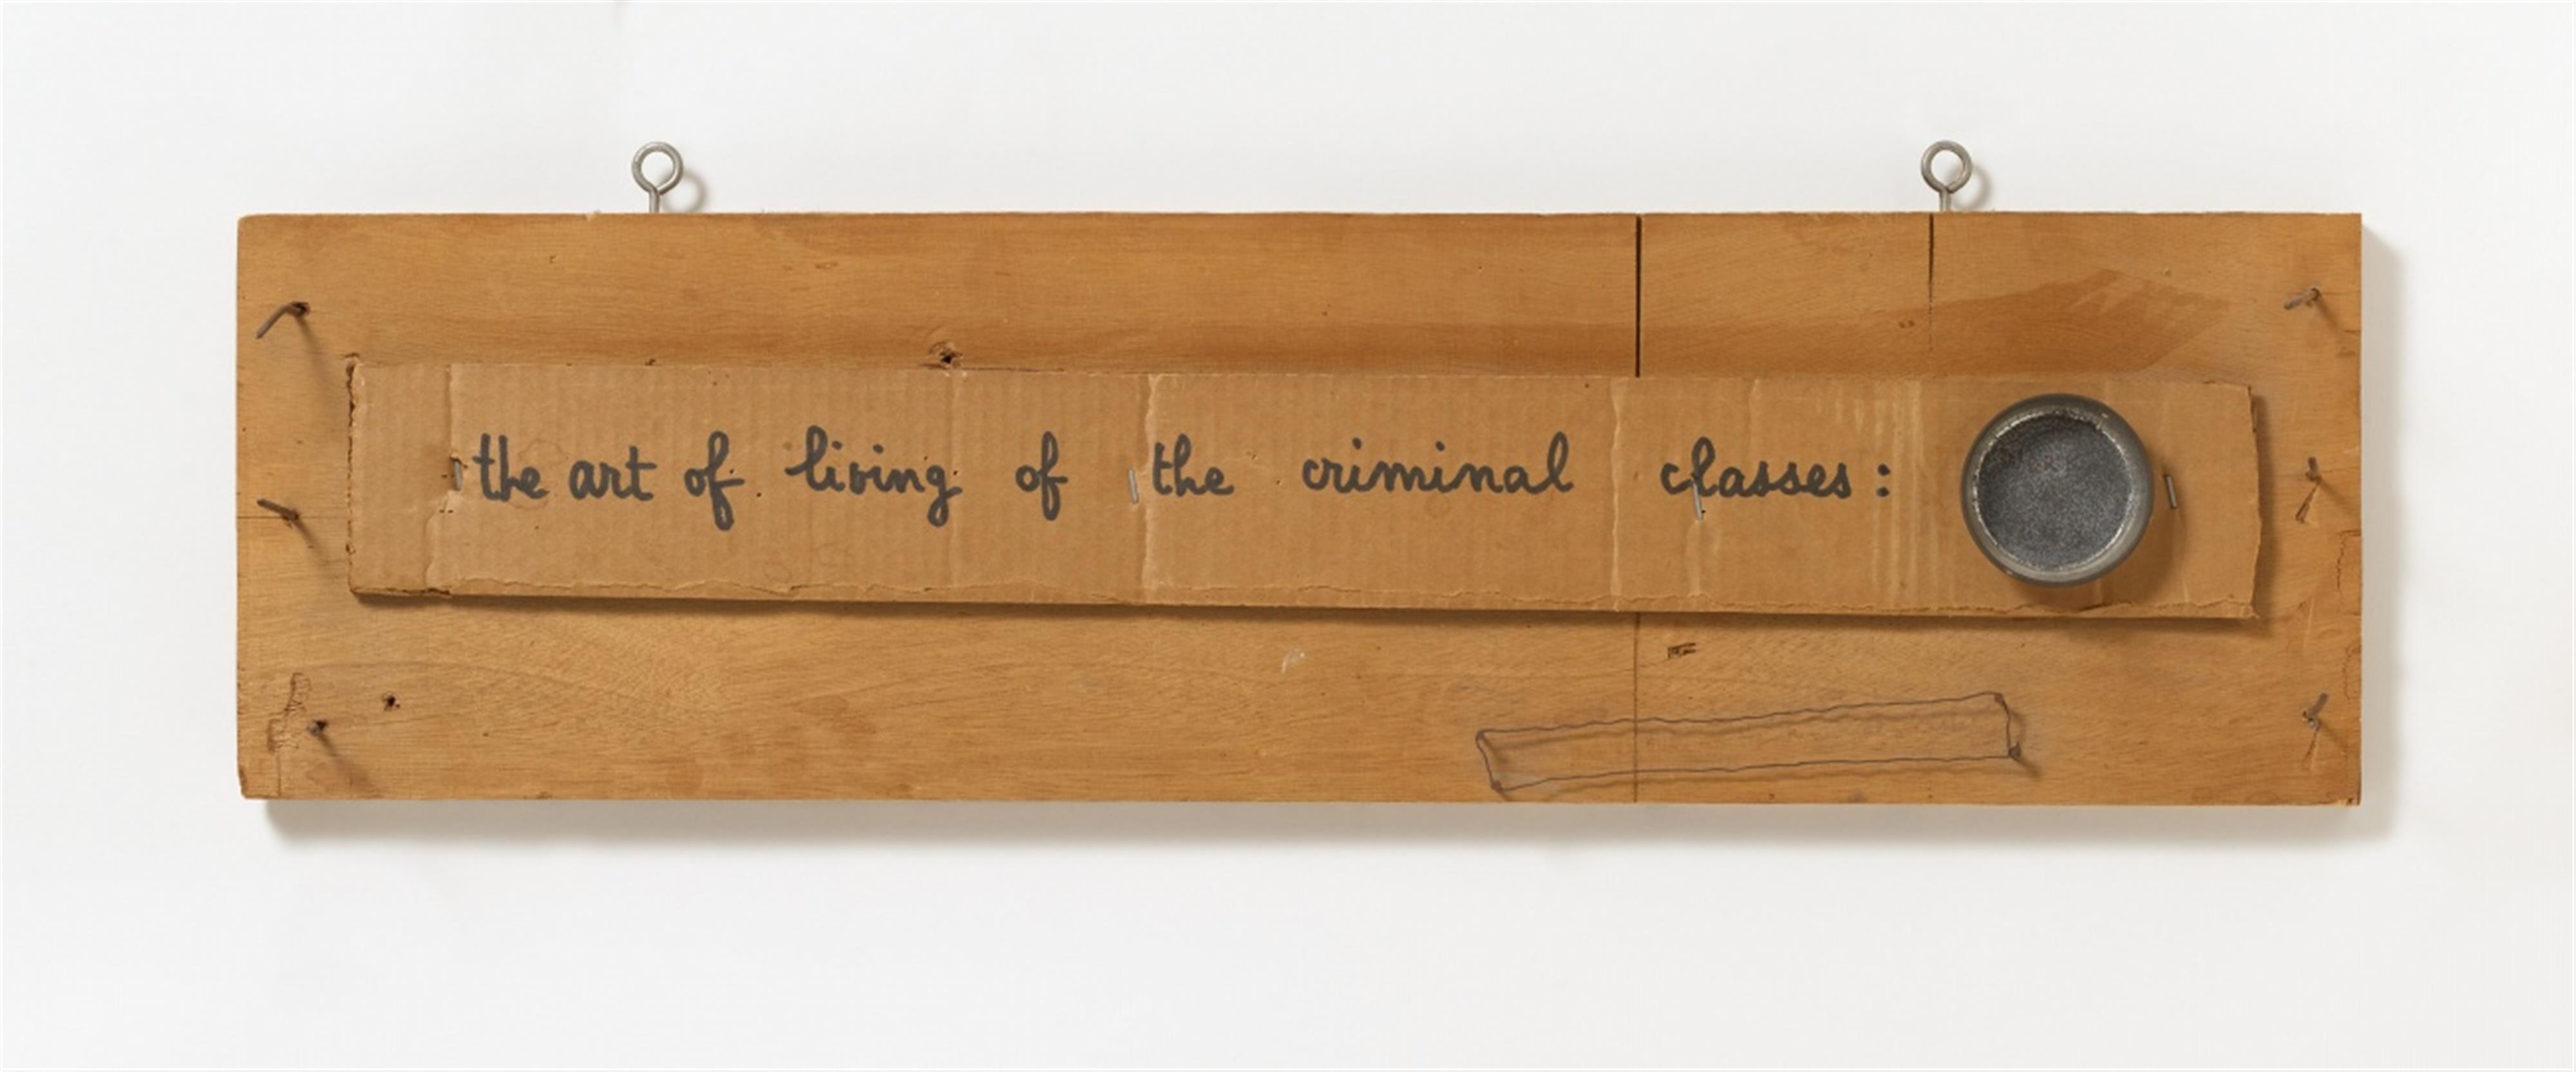 the art of living of the criminal classes: